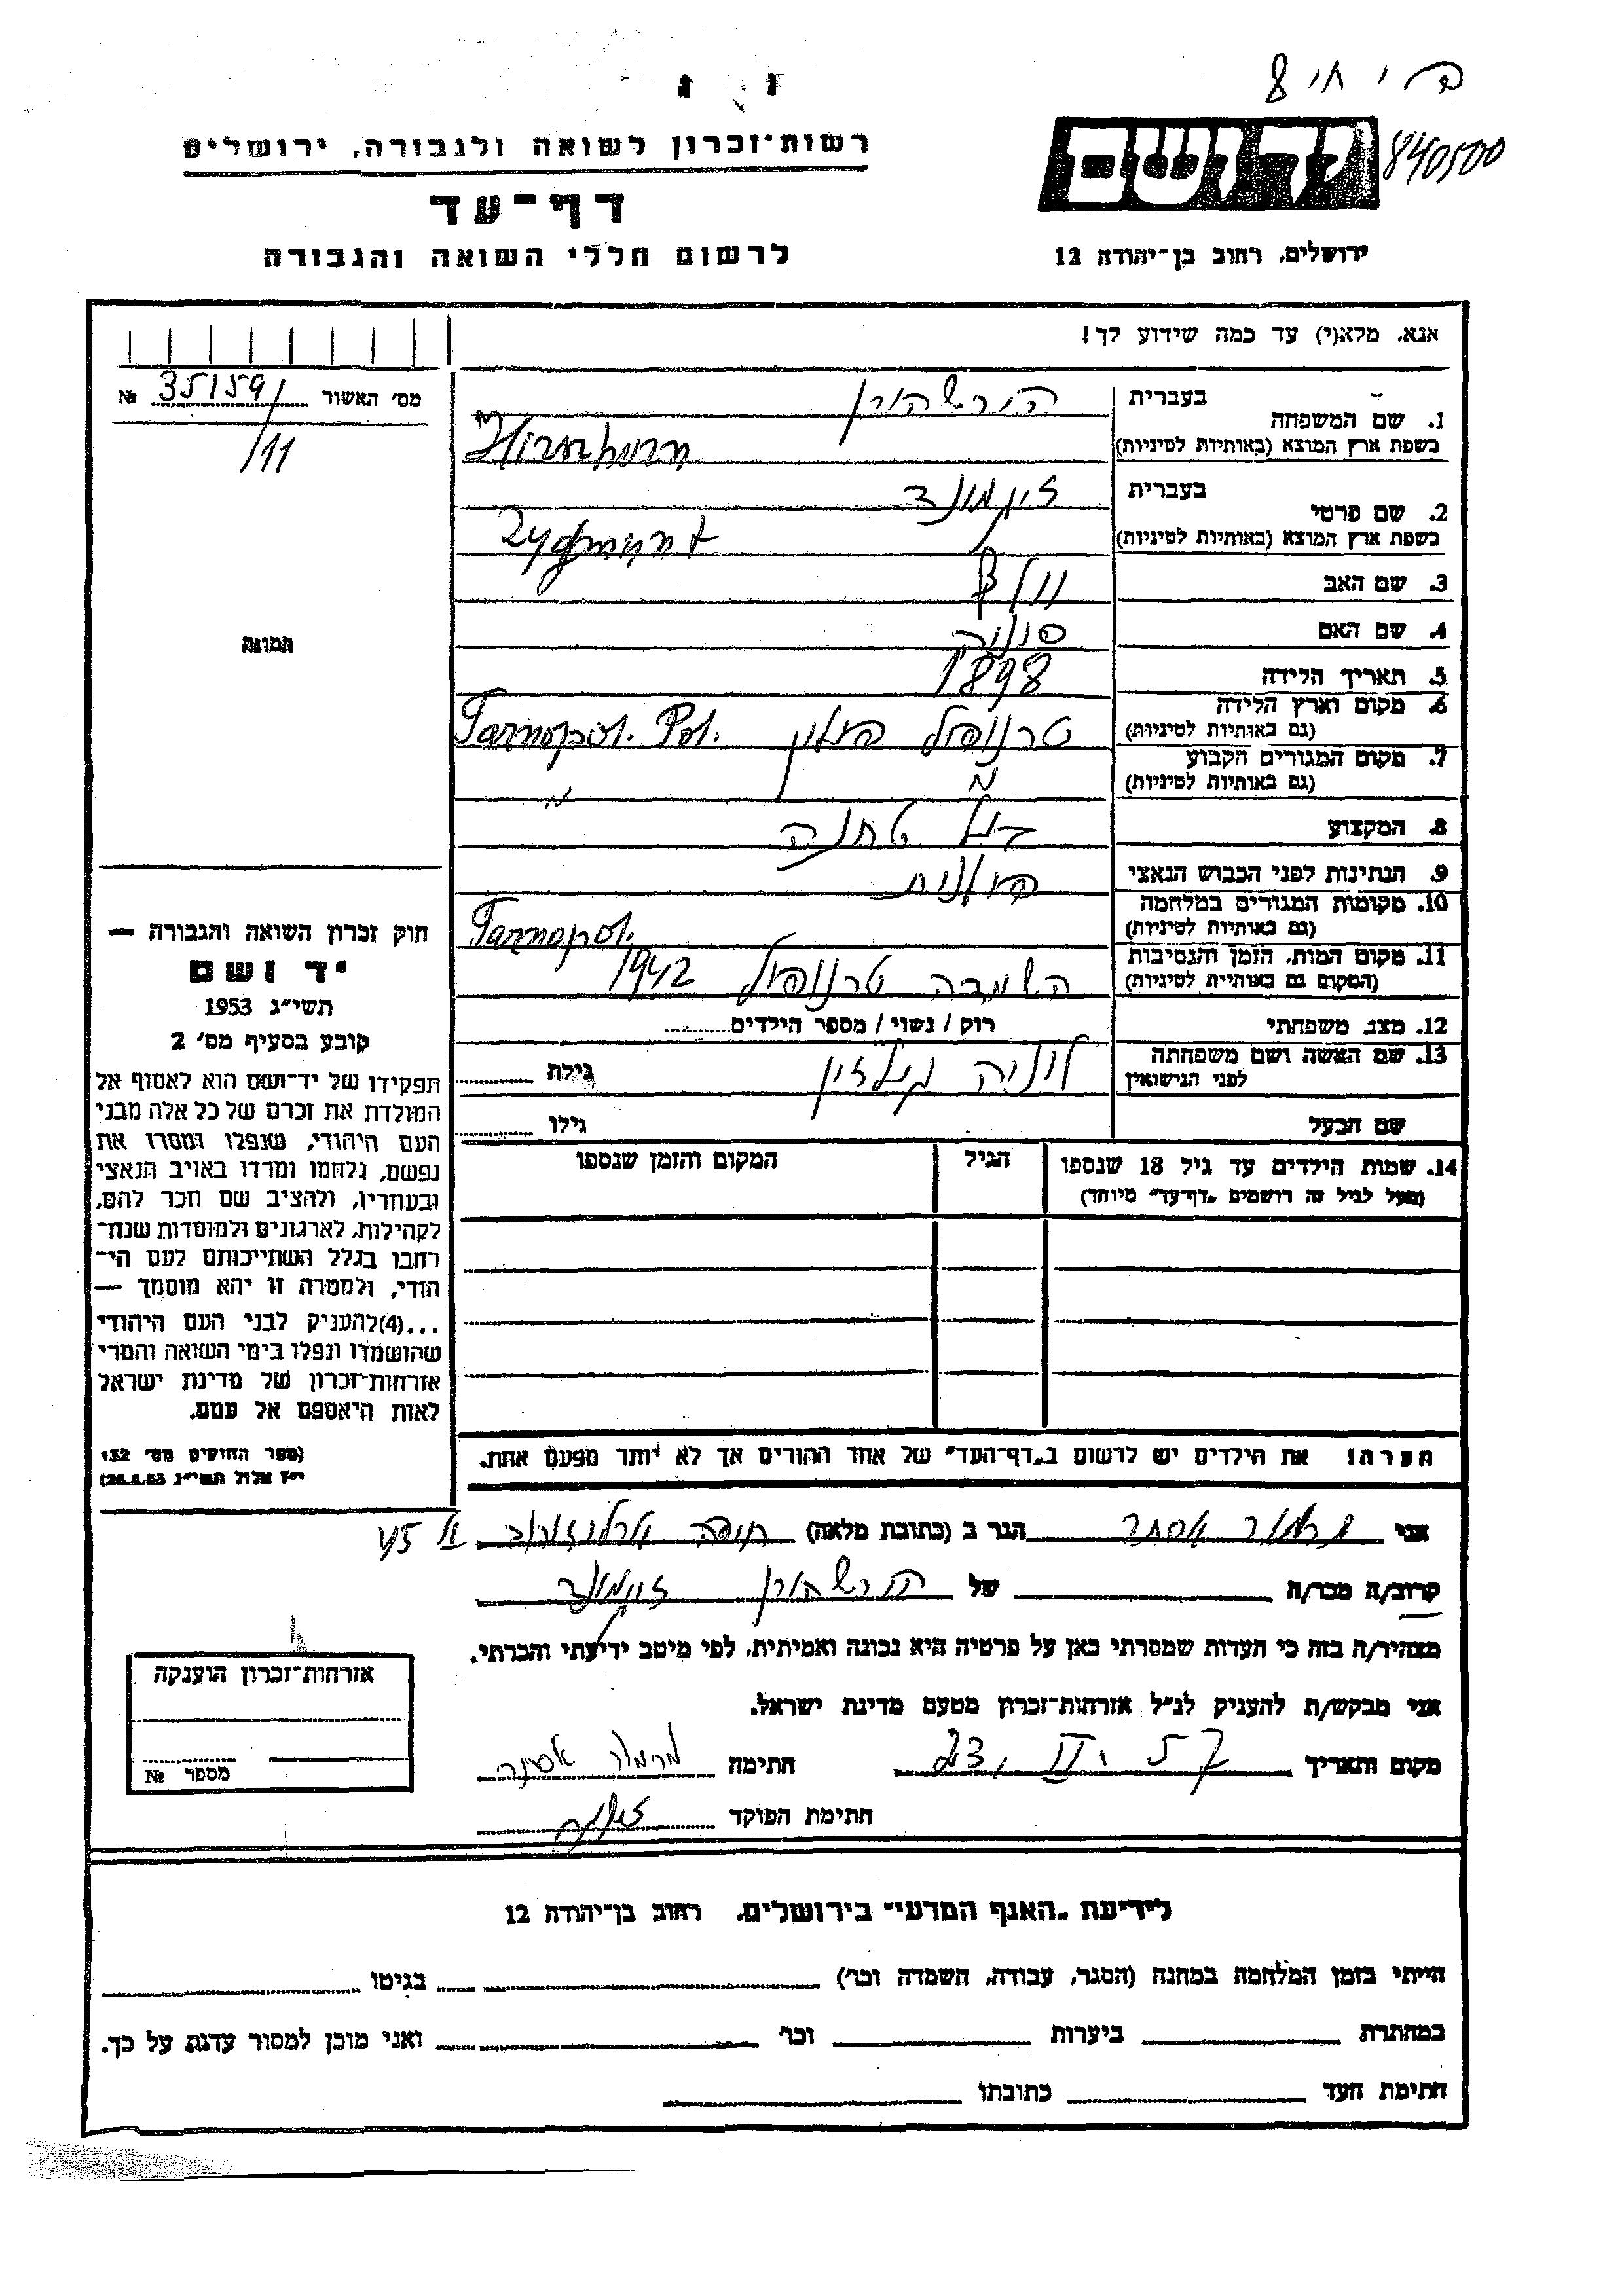 רשות-זכרון לשואה ולגבורה, ירושלים
דף-עד
לרשום חללי השואה והגבורה
יד ושם
840500
ירושלים, רחוב בן-יהודה 12
אנא, מלא(י) עד כמה שידוע לך!
מס' האשור 35159/ №
/11
1. שם המשפחה
בעברית הירשהורן
בשפת ארץ המוצא (באותיות לטיניות) Hirschhorn
2. שם פרטי
בעברית זיגמונד
בשפת ארץ המוצא (באותיות לטיניות) Zygmunt
3. שם האב וולף
4. שם האם סוניה
5. תאריך הלידה 1898
6. מקום וארץ הלידה טרנופול פולין Tarnopol. Pol.
(גם באותיות לטיניות)
7. מקום המגורים הקבוע
(גם באותיות לטיניות) " "
8. המקצוע בעל טחנה
9. הנתינות לפני הכבוש הנאצי פולנית
10. מקומות המגורים במלחמה Tarnopol.
(גם באותיות לטיניות)
11. מקום המות, הזמן והנסיבות השמדה טרנופול 1942
(המקום גם באותיות לטיניות)
12. מצב משפחתי רוק / נשוי / מספר הילדים
13. שם האשה ושם משפחתה גילה
לפני הנישואין
שם הבעל גילו
14. שמות הילדים עד גיל 18 שנספו הגיל המקום והזמן שנספו
(מעל לגיל זה רושמים "דף-עד" מיוחד)
תמונה
חוק זכרון השואה והגבורה —
יד ושם
תשי"ג 1953
קובע בסעיף מס' 2
תפקידו של יד-ושם הוא לאסוף אל
המולדת את זכרם של כל אלה מבני
העם היהודי, שנפלו ומסרו את
נפשם, נלחמו ומרדו באויב הנאצי
ובעוזריו, ולהציב שם וזכר להם,
לקהילות, לארגונים ולמוסדות שנח-
רבו בגלל השתייכותם לעם הי-
הודי, ולמטרה זו יהא מוסמך —
...(4) להעניק לבני העם היהודי
שהושמדו ונפלו בימי השואה והמרי
אזרחות-זכרון של מדינת ישראל
לאות היאספם אל עמם.
(ספר החוקים מס' 132
י"ז אלול תשי"ג 26.8.53)
הערה! את הילדים יש לרשום ב"דף-העד" של אחד ההורים אך לא יותר מפעם אחת.
אני אסתר הגר ב (כתובת מלאה) חיפה ארלוזורוב
קרוב/ה מכר/ה של הירשהורן זיגמונד
מצהיר/ה בזה כי העדות שמסרתי כאן על פרטיה היא נכונה ואמיתית, לפי מיטב ידיעתי והכרתי.
אני מבקש/ת להעניק לנ"ל אזרחות-זכרון מטעם מדינת ישראל.
מקום ותאריך חתימה אסתר
חתימת הפוקד
אזרחות-זכרון הוענקה
מספר №
לידיעת "האגף המדעי" בירושלים, רחוב בן-יהודה 12
הייתי בזמן המלחמה במחנה (הסגר, עבודה, השמדה וכו') בגיטו
במחתרת ביערות וכו' ואני מוכן למסור עדות על כך.
חתימת העד כתובתו